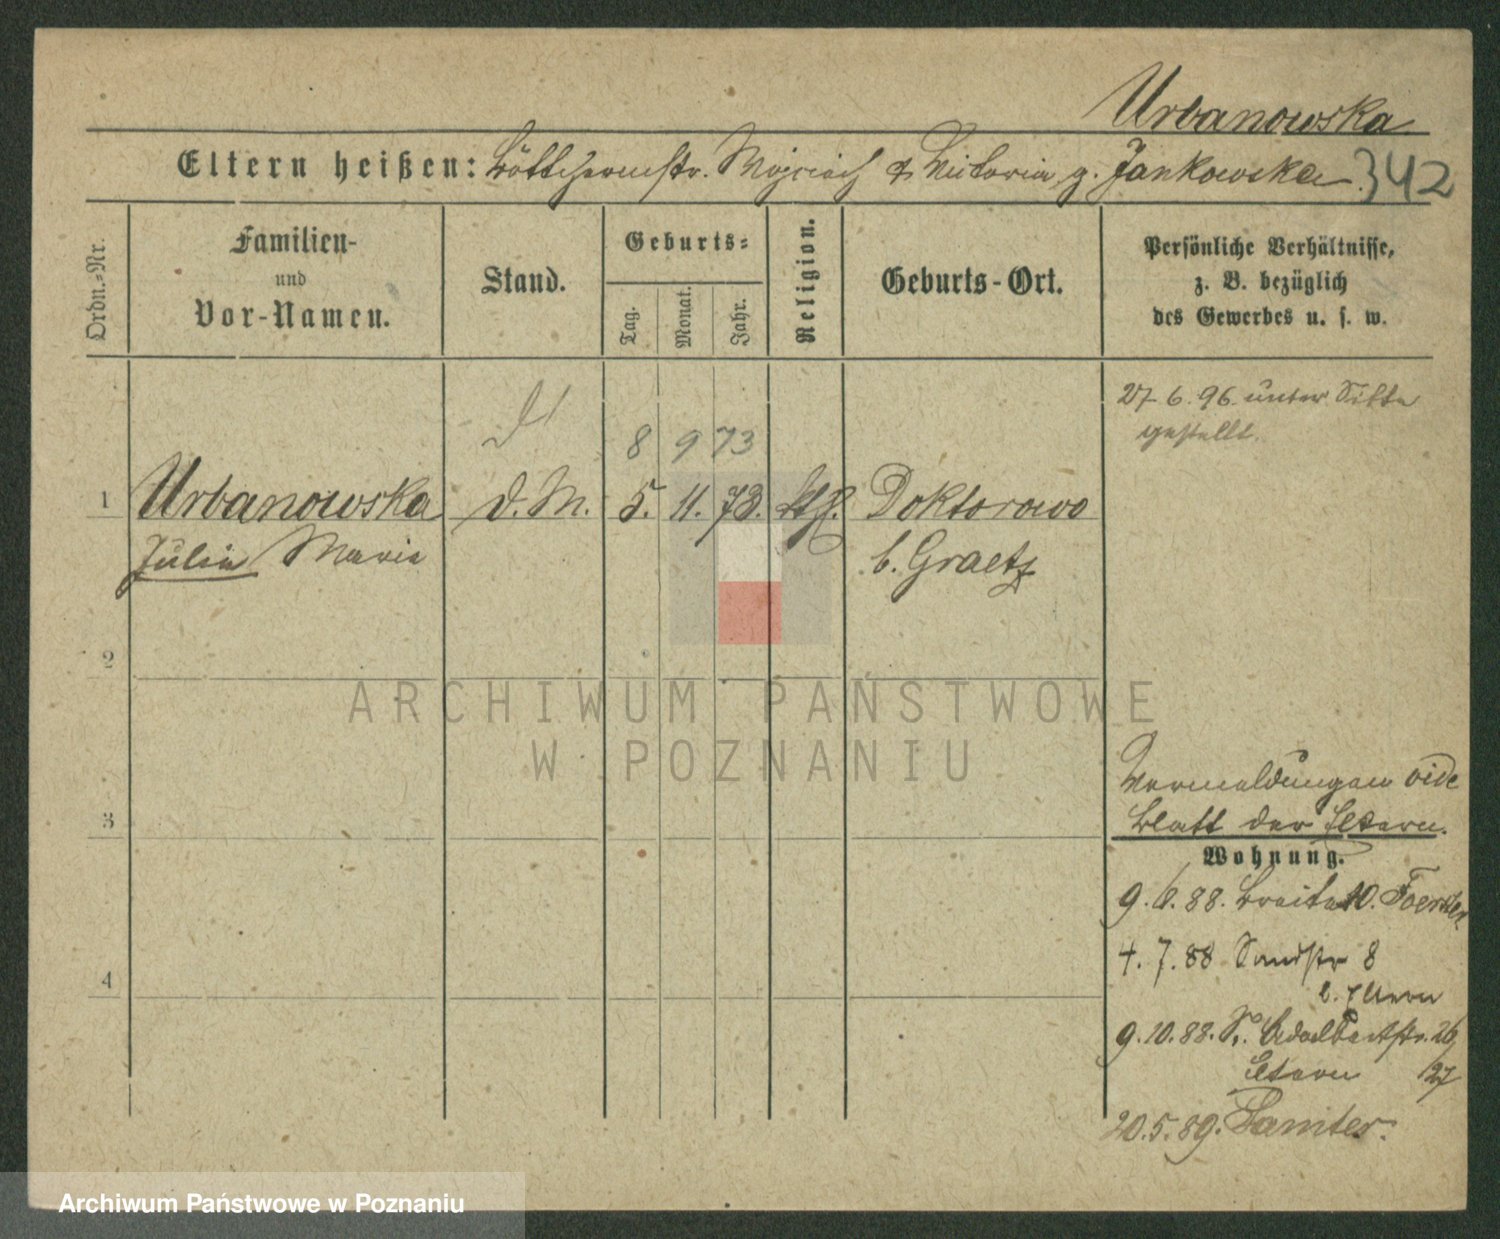 Urbanowska
Eltern heißen: Böttchermstr. Wojciech & Victoria g. Jankowska. 342
Ordn.-Nr.
Familien-
und
Vor-Namen.
Stand.
Geburts-
Tag.
Monat.
Jahr.
Religion.
Geburts-Ort.
Persönliche Verhältnisse,
z. B. bezüglich
des Gewerbes u. s. w.
27. 6. 96. unter Sitte
gestellt.
8 9 73
1 Urbanowska d. M. 5. 11. 73. kth. Doktorowo
Julia Maria b. Graetz
2
ARCHIWUM PAŃSTWOWE
W POZNANIU
Vermeldungen vide
Blatt der Eltern.
3
Wohnung.
9. 88. Breite 10. Foerster
4. 7. 88 Sandstr 8
b. Eltern
4
9. 10. 88. St. Adalbertstr. 26/
Eltern 27
20. 5. 89. Samter.
Archiwum Państwowe w Poznaniu